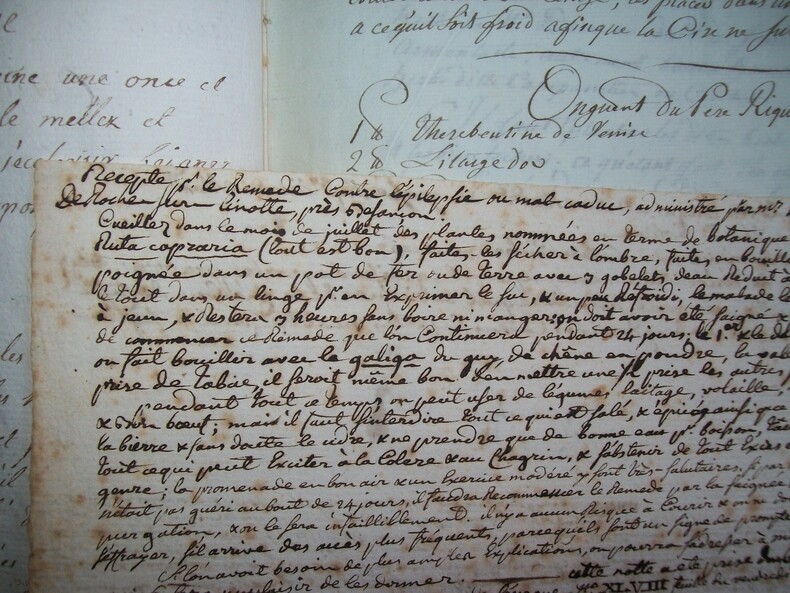 a cequil soit froid afinque la Cire ne
cine une once et
le mettez et
Onguent du Pere
1 lb Therebentine de Venise
2 lb Litarge dor
Recepte pr. le Remede Contre l'Epilepsie ou mal caduc, administré par mr
De Rochen sur Linotte, près Besançon.
Cueillez dans le mois de juillet des plantes nommées en terme de botanique
Ruta capraria (tout est bon), faites les sécher a l'ombre, faites en bouillir
poignée dans un pot de fer ou de terre avec 3 gobelets deau Reduit à
le tout dans un linge pr. en Exprimer le suc, & un peu Réfroidi, le malade le
à jeun, & Restera 3 heures sans boire ni manger: on doit avoir été saigné &
de commencer ce Remede que l'on Continuera pendant 24 jours; le 1.er & le
on fait bouillir avec la galiga du guy de chêne en poudre, la
prise de Tabac, il seroit même bon d'en mettre une prise les autres
pendant tout ce temps on peut user de legumes laitage, volaille,
& bon boeuf; mais il faut s'interdire tout ce qui est salé, & épicé ainsi que
la bierre & sans doute le cidre, & ne prendre que de bonne eau pr. boisson,
tout ce qui peut Exciter à la Colere & au Chagrin, & s'abstenir de tout Excès
genre; la promenade en bon air & un Exercice modéré y sont très-salutaires. Si
n'étoit pas guéri au bout de 24 jours, il faudra Recommencer le Remede par la saignée
purgation, & on le sera infailliblement. il n'y a aucun Risque à Courir & on ne
s'effrayer, s'il arrive des accès plus frequents, parcequ'ils sont un signe de prompte
Si l'on avoit besoin de plus amples Explications, on pourra s'adresser à
plaisir de les donner. cette notte a été prise dans
No XLVIII